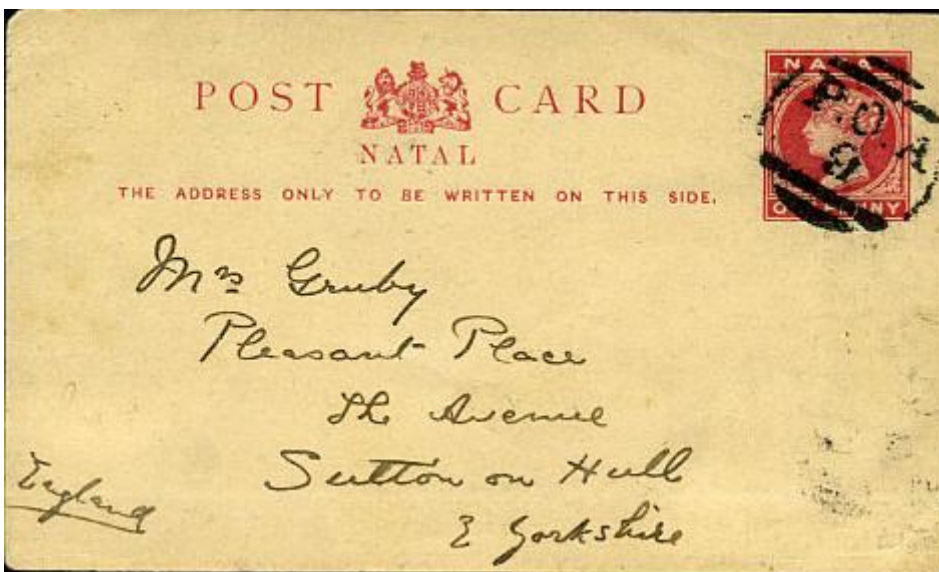 POST CARD
NATAL
THE ADDRESS ONLY TO BE WRITTEN ON THIS SIDE.
NATAL
P.O.A
91
ONE PENNY
Mrs Gruby
Pleasant Place
The Avenue
Sutton on Hull
E Yorkshire
England